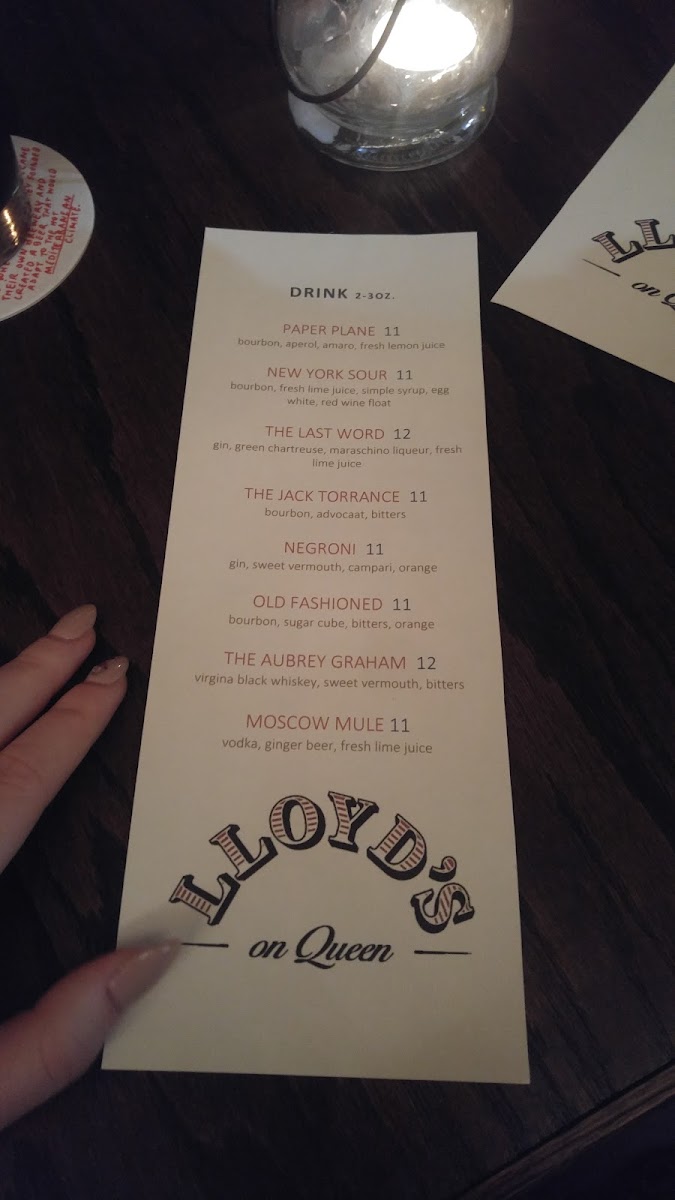 CANE
FOUNDED
THEIR OWN BREWERY AND
CREATED A BEER THAT WOULD
ADAPT TO THE HOT
MEDITERRANEAN
CLIMATE.
DRINK 2-3OZ.
PAPER PLANE 11
bourbon, aperol, amaro, fresh lemon juice
NEW YORK SOUR 11
bourbon, fresh lime juice, simple syrup, egg
white, red wine float
THE LAST WORD 12
gin, green chartreuse, maraschino liqueur, fresh
lime juice
THE JACK TORRANCE 11
bourbon, advocaat, bitters
NEGRONI 11
gin, sweet vermouth, campari, orange
OLD FASHIONED 11
bourbon, sugar cube, bitters, orange
THE AUBREY GRAHAM 12
virgina black whiskey, sweet vermouth, bitters
MOSCOW MULE 11
vodka, ginger beer, fresh lime juice
LLOYD'S
on Queen
LL
on Q